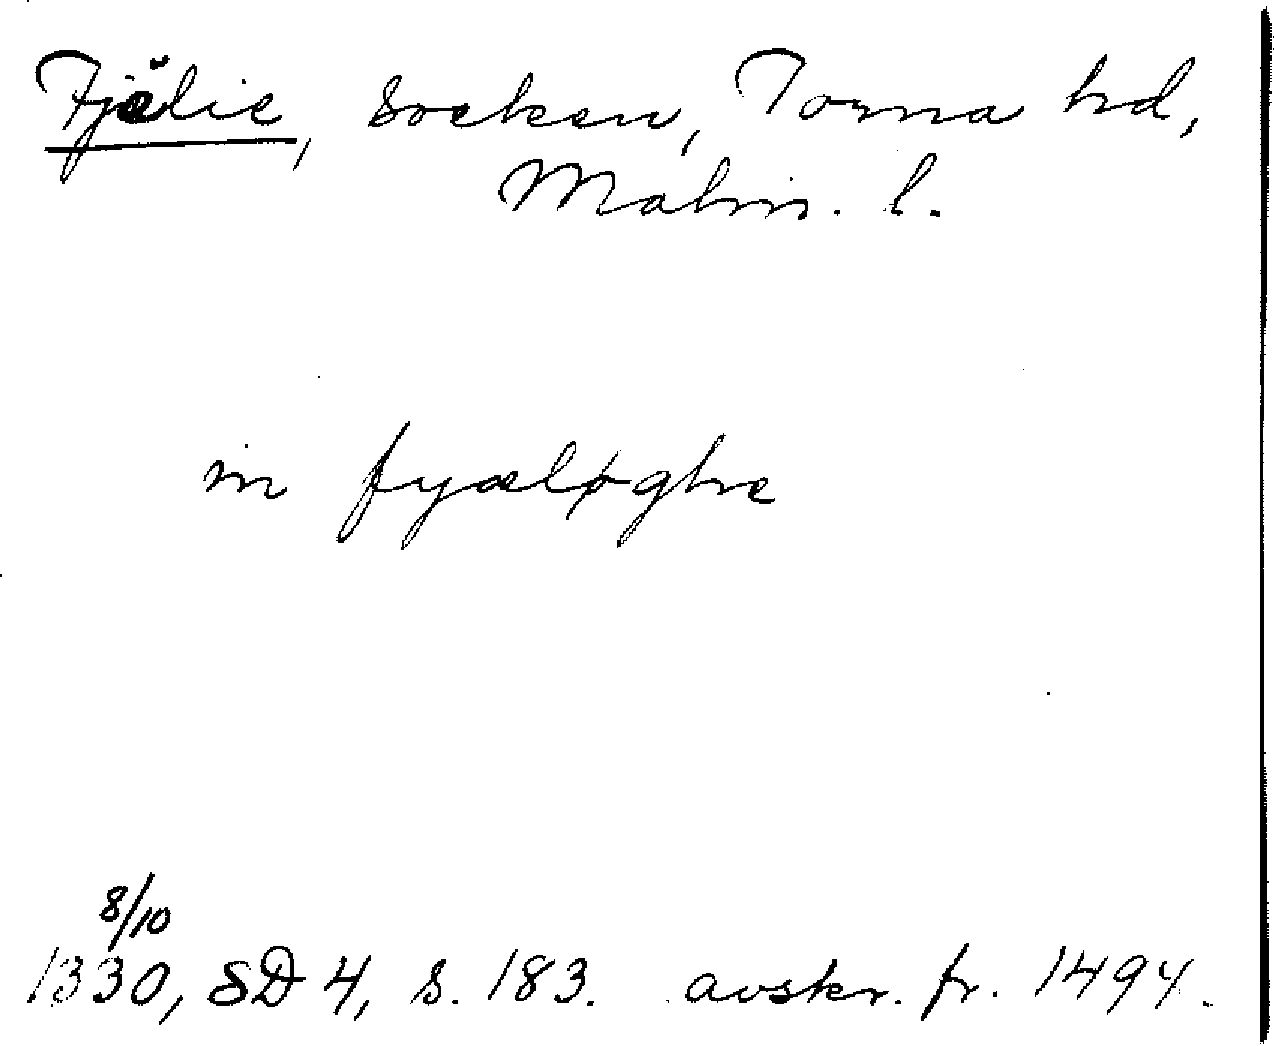 Fjälie, socken, Torna hd,
Malm. l.
in fyæløghe
8/10
1330, SD 4, s. 183. avskr. fr. 1494.